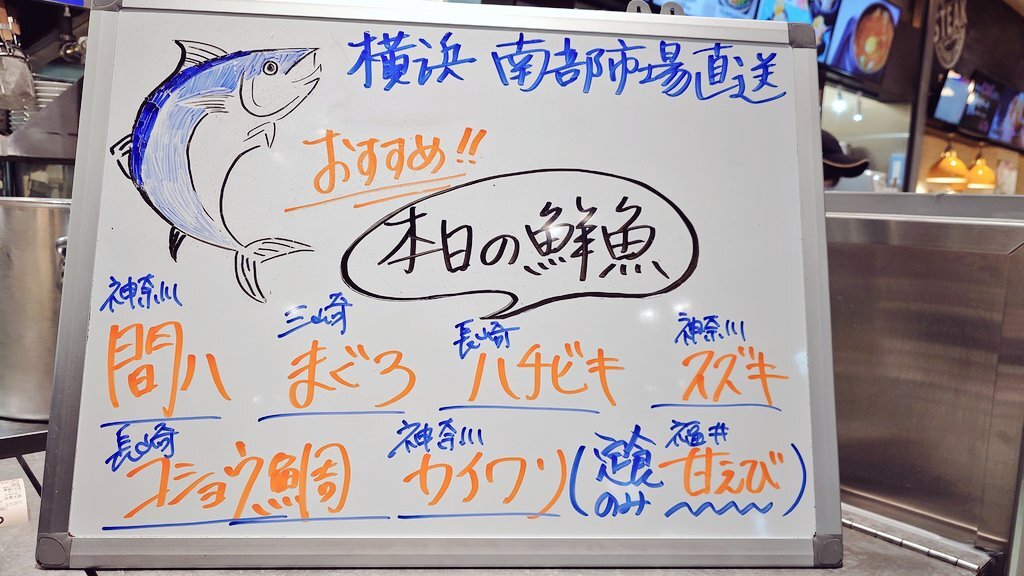 横浜 南部市場直送
おすすめ!!
本日の鮮魚
神奈川 三崎 長崎 神奈川
間八 まぐろ ハチビキ スズキ
長崎 神奈川 福井
コショウ鯛 カイワリ (定食のみ 甘えび)
STEAK